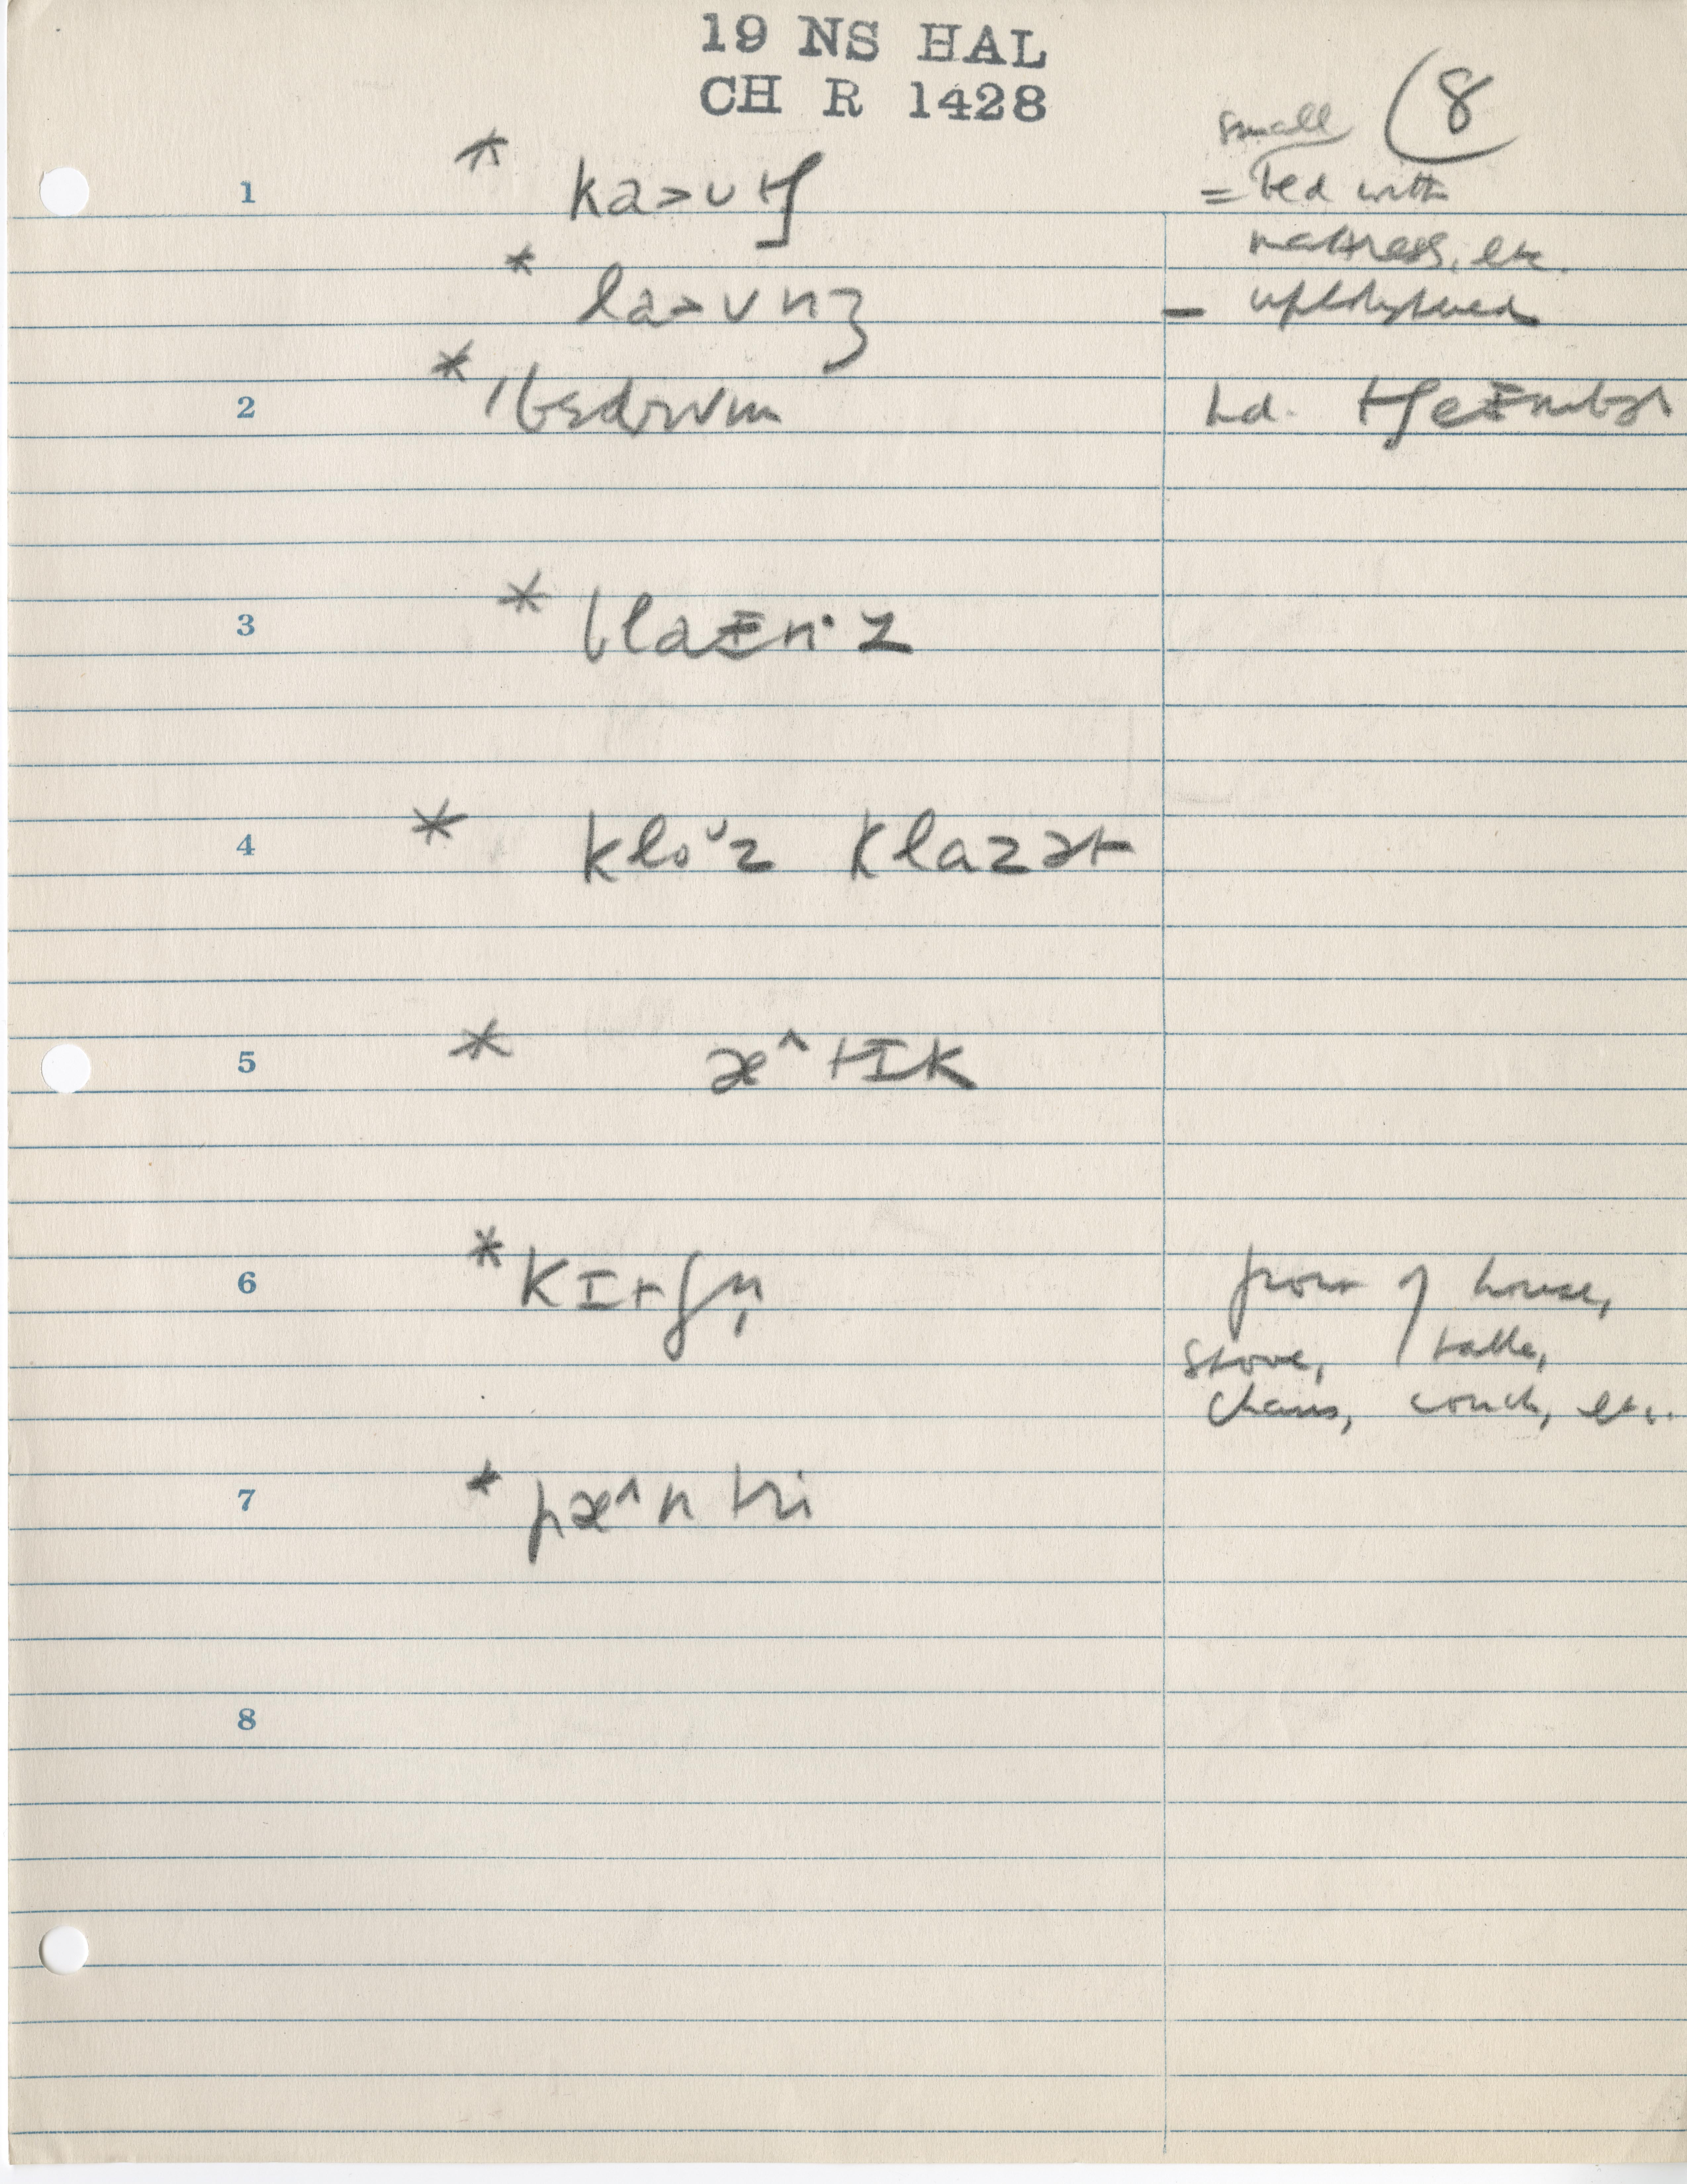 19 NS HAL
CH R 1428
8
small
1 * ka>ʊtʃ = bed with
mattress, etc.
* la>ʊnʒ - upholstered
2 * ˈbɛdrʊm hd. tʃeɪmbɚ
3 * blaɪn·z
4 * kloᴗz klazət
5 * æ^tɪk
6 * kɪtʃn̩ front of house,
stove, table,
chairs, couch, etc.
7 * pæ^ntri
8